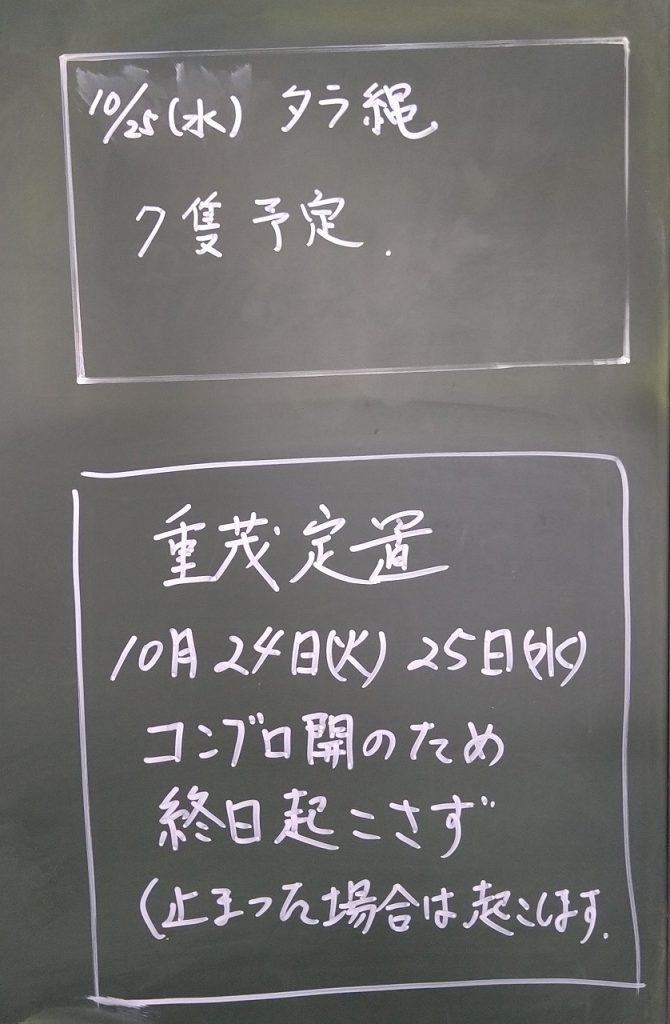 10/25(水) タラ縄
7隻予定.
重茂定置
10月24日(火) 25日(水)
コンブロ開のため
終日起こさず
(止まった場合は起こします.